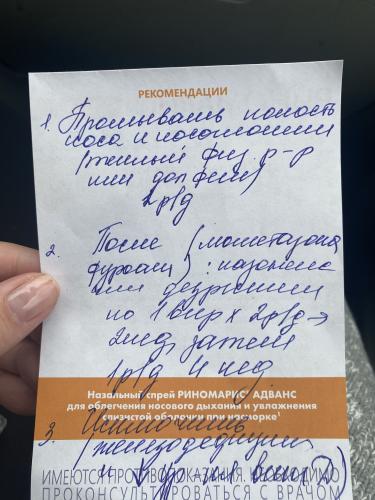 РЕКОМЕНДАЦИИ
1. Промывать полость
носа и носоглотки
(теплый физ. р-р
или долфин)
2р/д
2. После (мометазона
фуроат : назонекс
или дезринит)
по 1 впр x 2р/д →
2 нед, затем
1р/д 4 нед
Назальный спрей РИНОМАРИС® АДВАНС
для облегчения носового дыхания и увлажнения
слизистой оболочки при насморке¹
3. Исключить
железодефицит
и
ИМЕЮТСЯ ПРОТИВОПОКАЗАНИЯ. НЕОБХОДИМО
ПРОКОНСУЛЬТИРОВАТЬСЯ С ВРАЧОМ